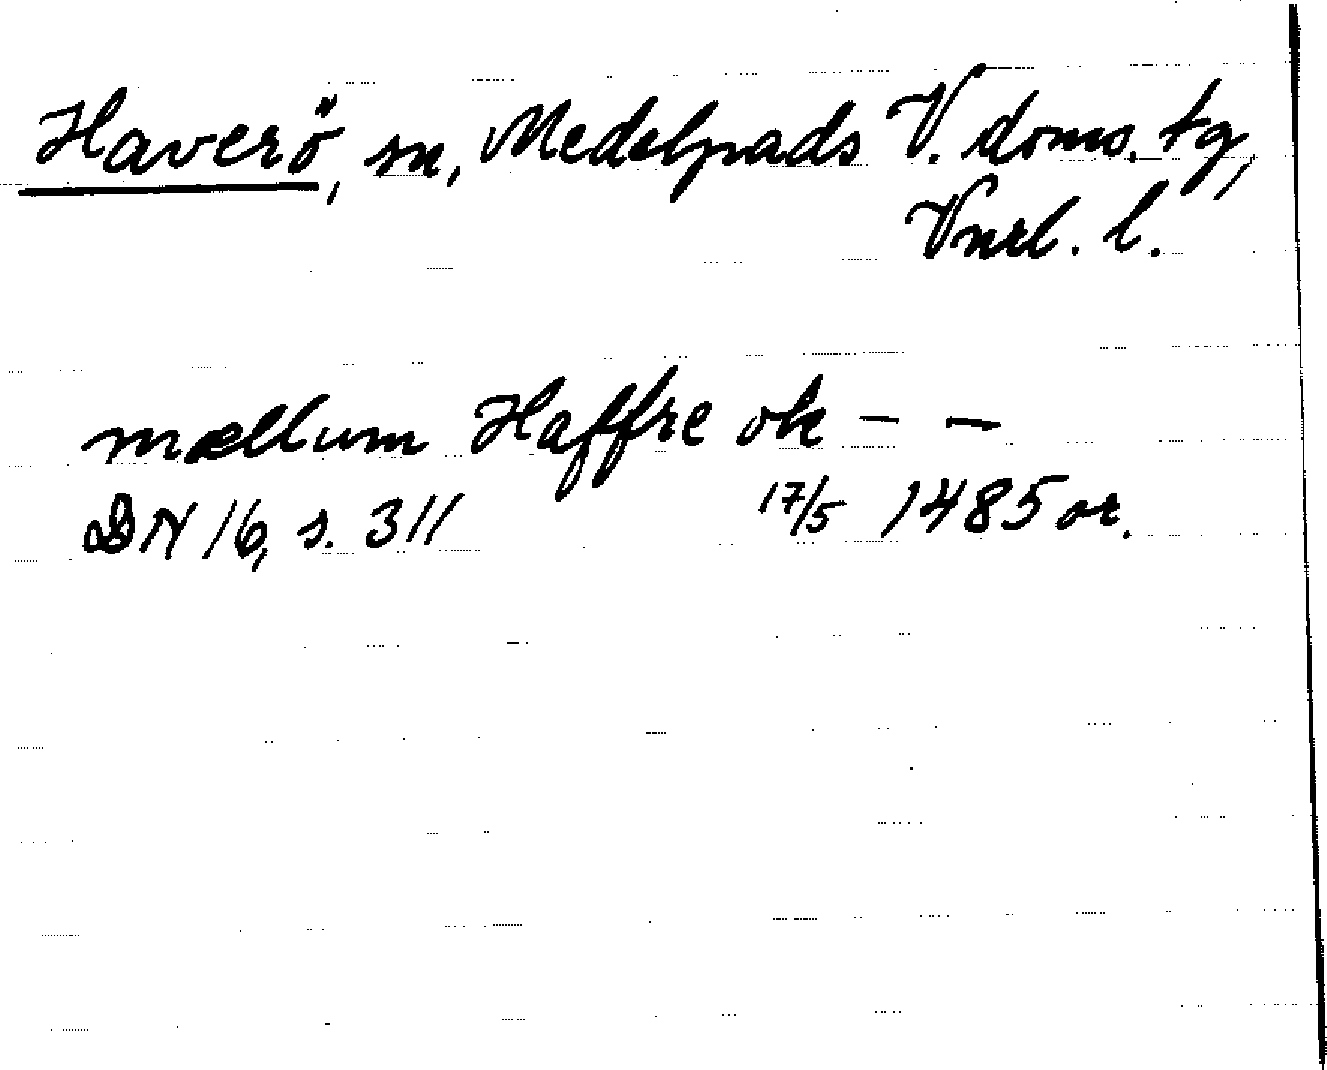 Haverö, sn, Medelpads V. doms. tg,
Vnrl. l.
mællum Haffre ok — —
DN 16, s. 311 17/5 1485 or.